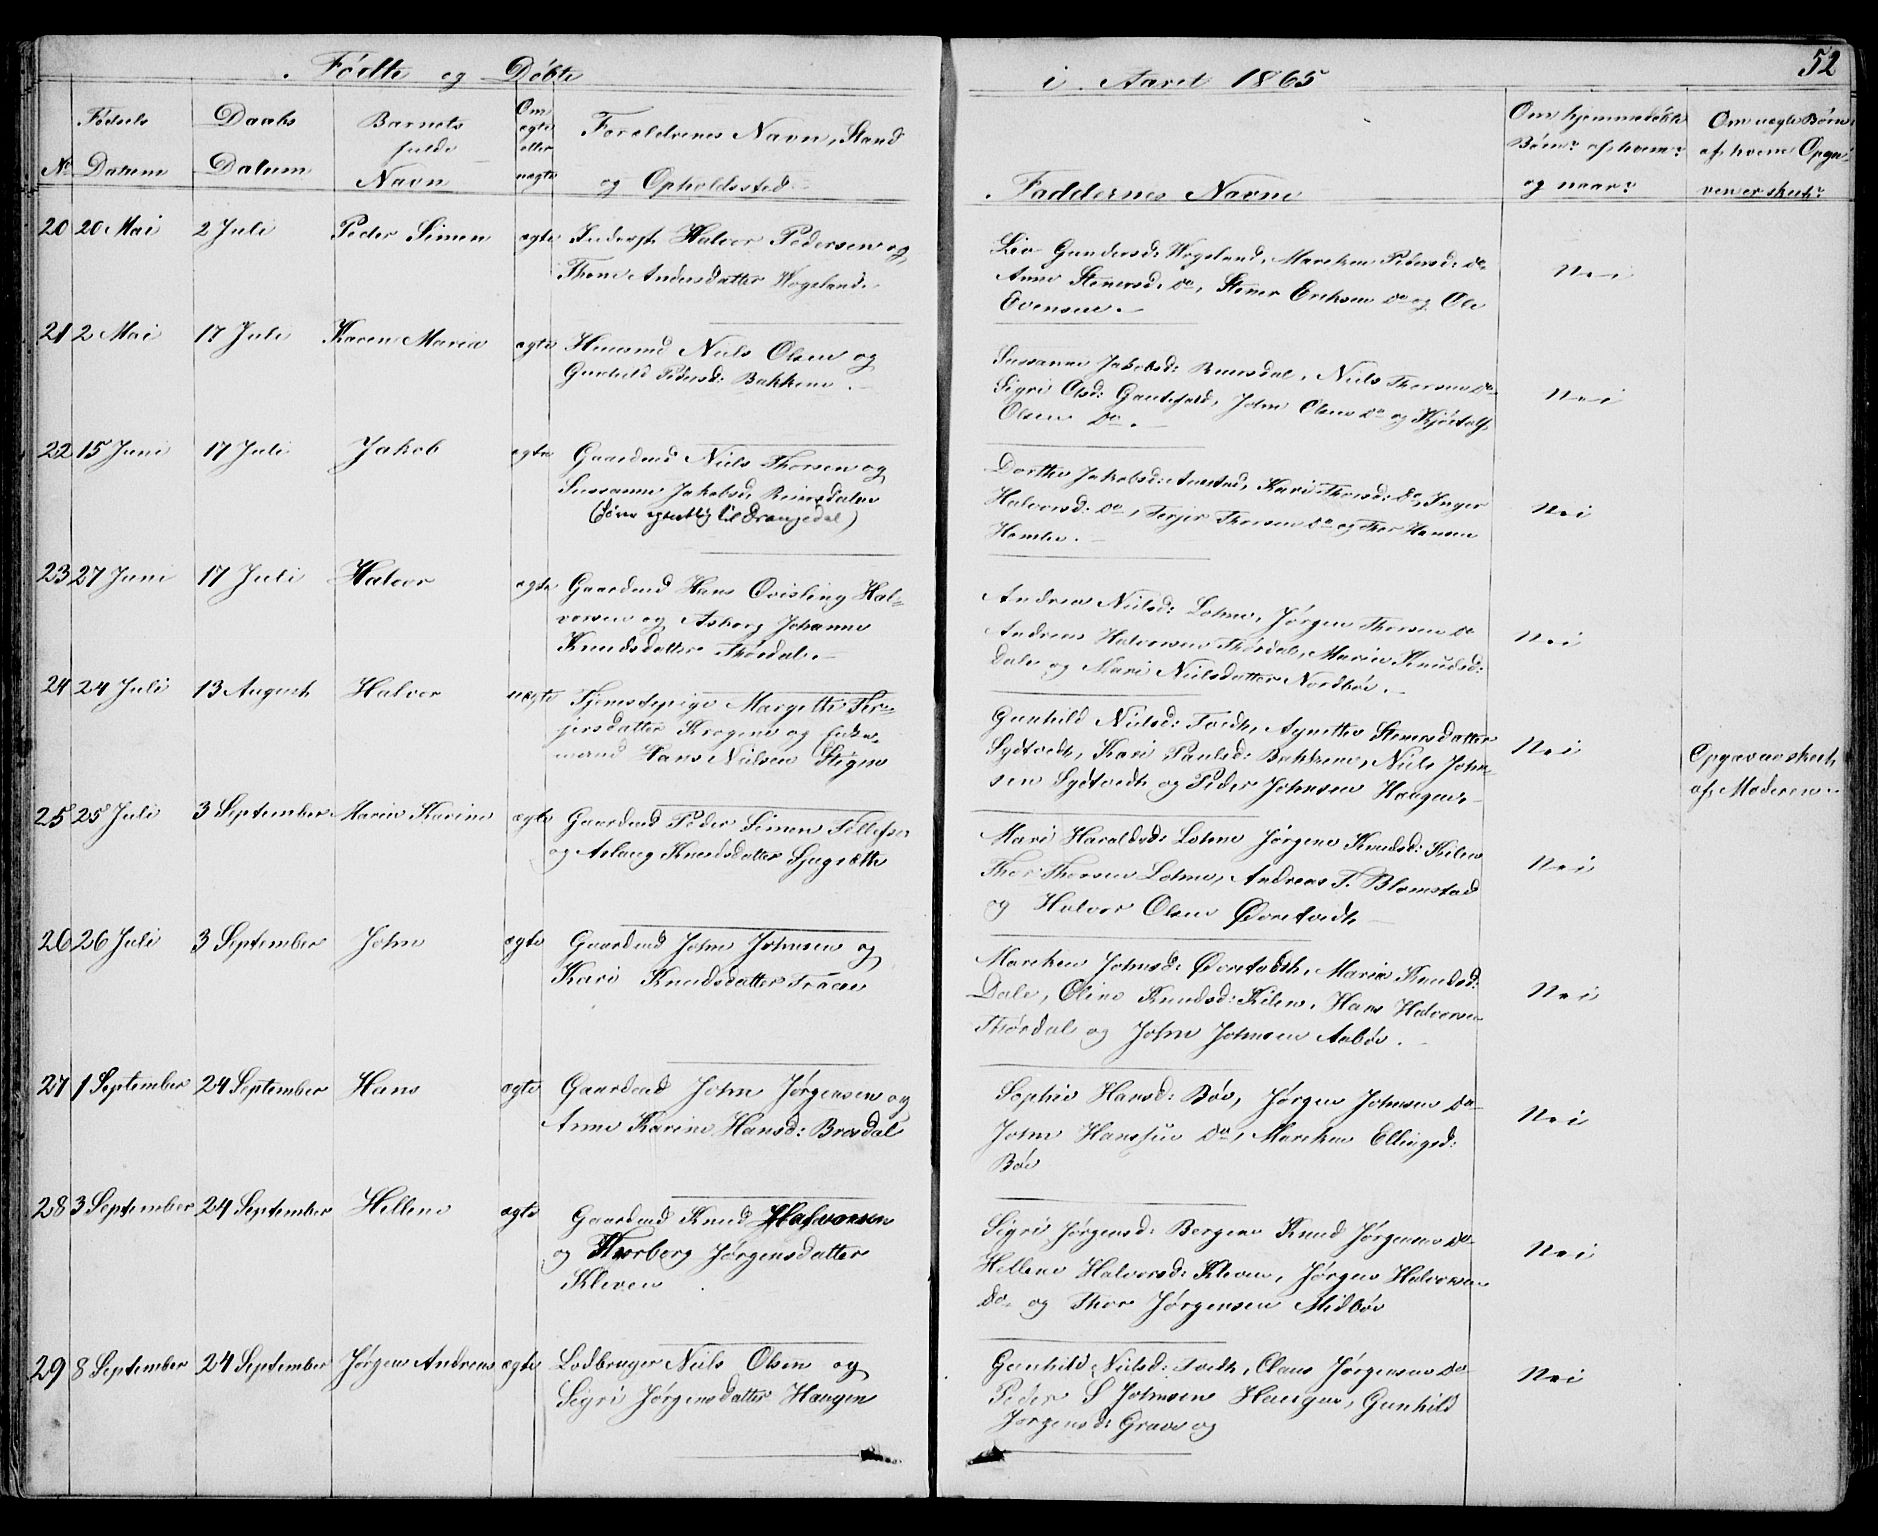 Fødte og Døbte
i Aaret 1865
52
No
Fødsels Datum
Daabs Datum
Barnets fulde Navn
Om ægte eller uægte
Forældrenes Navn, Stand og Opholdssted
Faddernes Navne
Om hjemmedøbte Børn? af hvem? og naar?
Om uægte Børn, af hvem Opgiven er skeet?
20 20 Mai 2 Juli Peder Simen ægte Inderst Halvor Pedersen og
Thone Andersdatter Wogeland.
Liv Gundersd: Wogeland, Mareken Pedersd: Do
Anne Stenersd: Do, Stener Eriksen Do og Ole
Evensen.
Nei
21 2 Mai 17 Juli Karen Maria ægte Huusmd Niels Olsen og
Gunhild Pedersd: Bakkene.
Sussanne Jakobsd: Rinesdal, Niels Thorsen Do
Sigri Olsd: Gautefald, John Olsen Do og Kjøstolf
Olsen Do.
Nei
22 15 Juni 17 Juli Jakob ægte Gaardmd Niels Thorsen og
Sussanne Jakobsd: Rinesdalen
til Drangedal)
Dorthe Jakobsd: Kari Thorsd: Do, Inger
Halvorsd: Do, Terjer Thorsen Do og Thor Hansen
Homlie.
Nei
23 27 Juni 17 Juli Halvor ægte Gaardmd Hans Qvisling Hal-
vorsen og Asborg Johanne
Knudsdatter Thordal.
Andrea Nielsd: Lohne, Jørgen Thorsen Do
Andreas Halvorsen Thordal, Maria Knudsd:
Dale og Mari Nielsdatter Nordbøe.
Nei
24 24 Juli 13 August Halvor uægte Tjenestepige Margethe Ter-
jersdatter Krogene og
mand Hans Nielsen Stigen
Gunhild Nielsd: Tvedt, Agnethe Stenersdatter
Sydtvedt, Kari Paulsd: Bakkene, Niels John-
sen Sydtvedt og Peder Johnsen Haugene
Nei
Opgav er skeet
af Moderen.
25 25 Juli 3 September Maren Karine ægte Gaardmd Peder Simen Tollefsen
og Aslaug Knudsdatter
Mari Haraldsd: Lohne Jørgine Knudsd: Kilen
Thor Thorsen Lohne, Andreas T. Blomstad
og Halvor Olsen Øvretvedt
Nei
26 26 Juli 3 September John ægte Gaardmd John Johnsen og
Kari Knudsdatter Traaen
Mareken Johnsd: Øvretvedt, Maria Knudsd:
Dale, Oline Knudsd: Kilen, Hans Halvorsen
Thordal og John Johnsen Aabøe.
Nei
27 1 September 24 September Hans ægte Gaardmd John Jørgensen og
Anne Karine Hansd: Brøsdal
Sophie Hansd: Bøe, Jørgen Johnsen Do
John Hanssen Do, Mareken Ellingsd:
Bøe
Nei
28 3 September 24 September Hellene ægte Gaardmd Knud Halvorsen
og Thorberg Jørgensdatter
Kleven
Sigri Jørgensd: Bergene Knud Jørgensen Do
Hellene Halvorsd: Kleven, Jørgen Halvorsen
Do. og Thor Jørgensen Midbøe
Nei
29 8 September 24 September Jørgen Andreas ægte Lodbruger Niels Olsen og
Sigri Jørgensdatter Haugen
Gunhild Nielsd: Tvedt, Claus Jørgensen Do
Peder S Johnsen Haugen, Gunhild
Jørgensd: Grave og
Nei